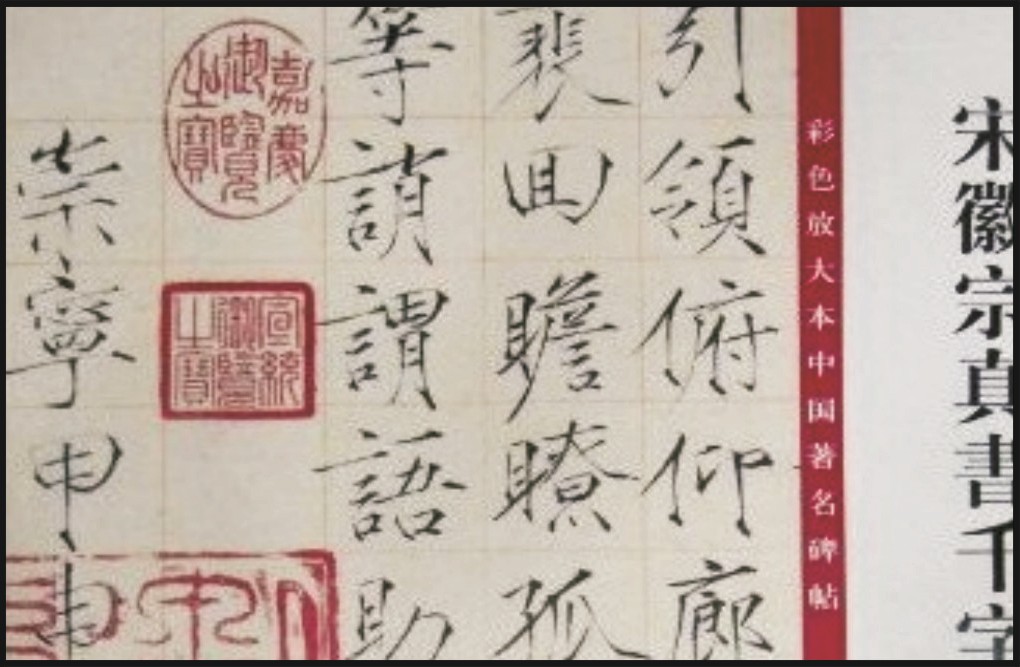 宋徽宗真書千字
彩色放大本中国著名碑帖
引領俯仰廊
裴回瞻瞭孤
等誚謂語助
嘉慶
御覽
之寶
宣統
御覽
之寶
崇寧甲申